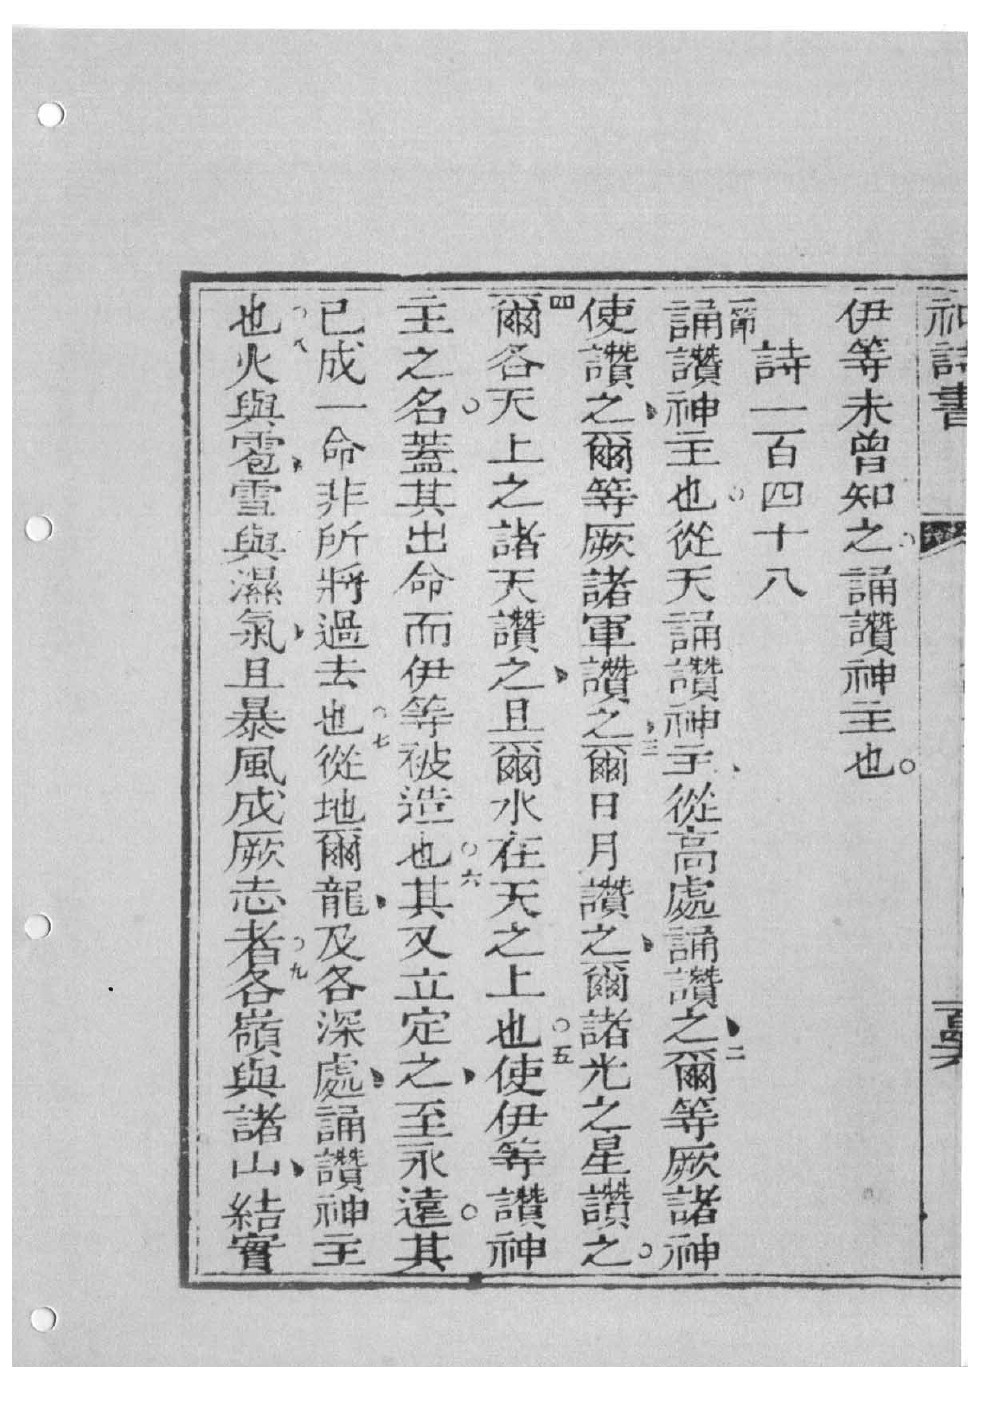 神詩書
伊等未曾知之。誦讚神主也。
詩一百四十八
一爾誦讚神主也。從天誦讚神主、從高處誦讚之、二爾等厥諸神
使讚之、爾等厥諸軍讚之、三爾日月讚之、爾諸光之星讚之。
四爾各天上之諸天讚之、且爾水在天之上也。五使伊等讚神
主之名。蓋其出命而伊等被造也。六其又立定之、至永遠。其
已成一命非所將過去也。七從地爾龍、及各深處、誦讚神主
也。八火與雹、雪與濕氣、且暴風成厥志者。九各嶺與諸山、結實